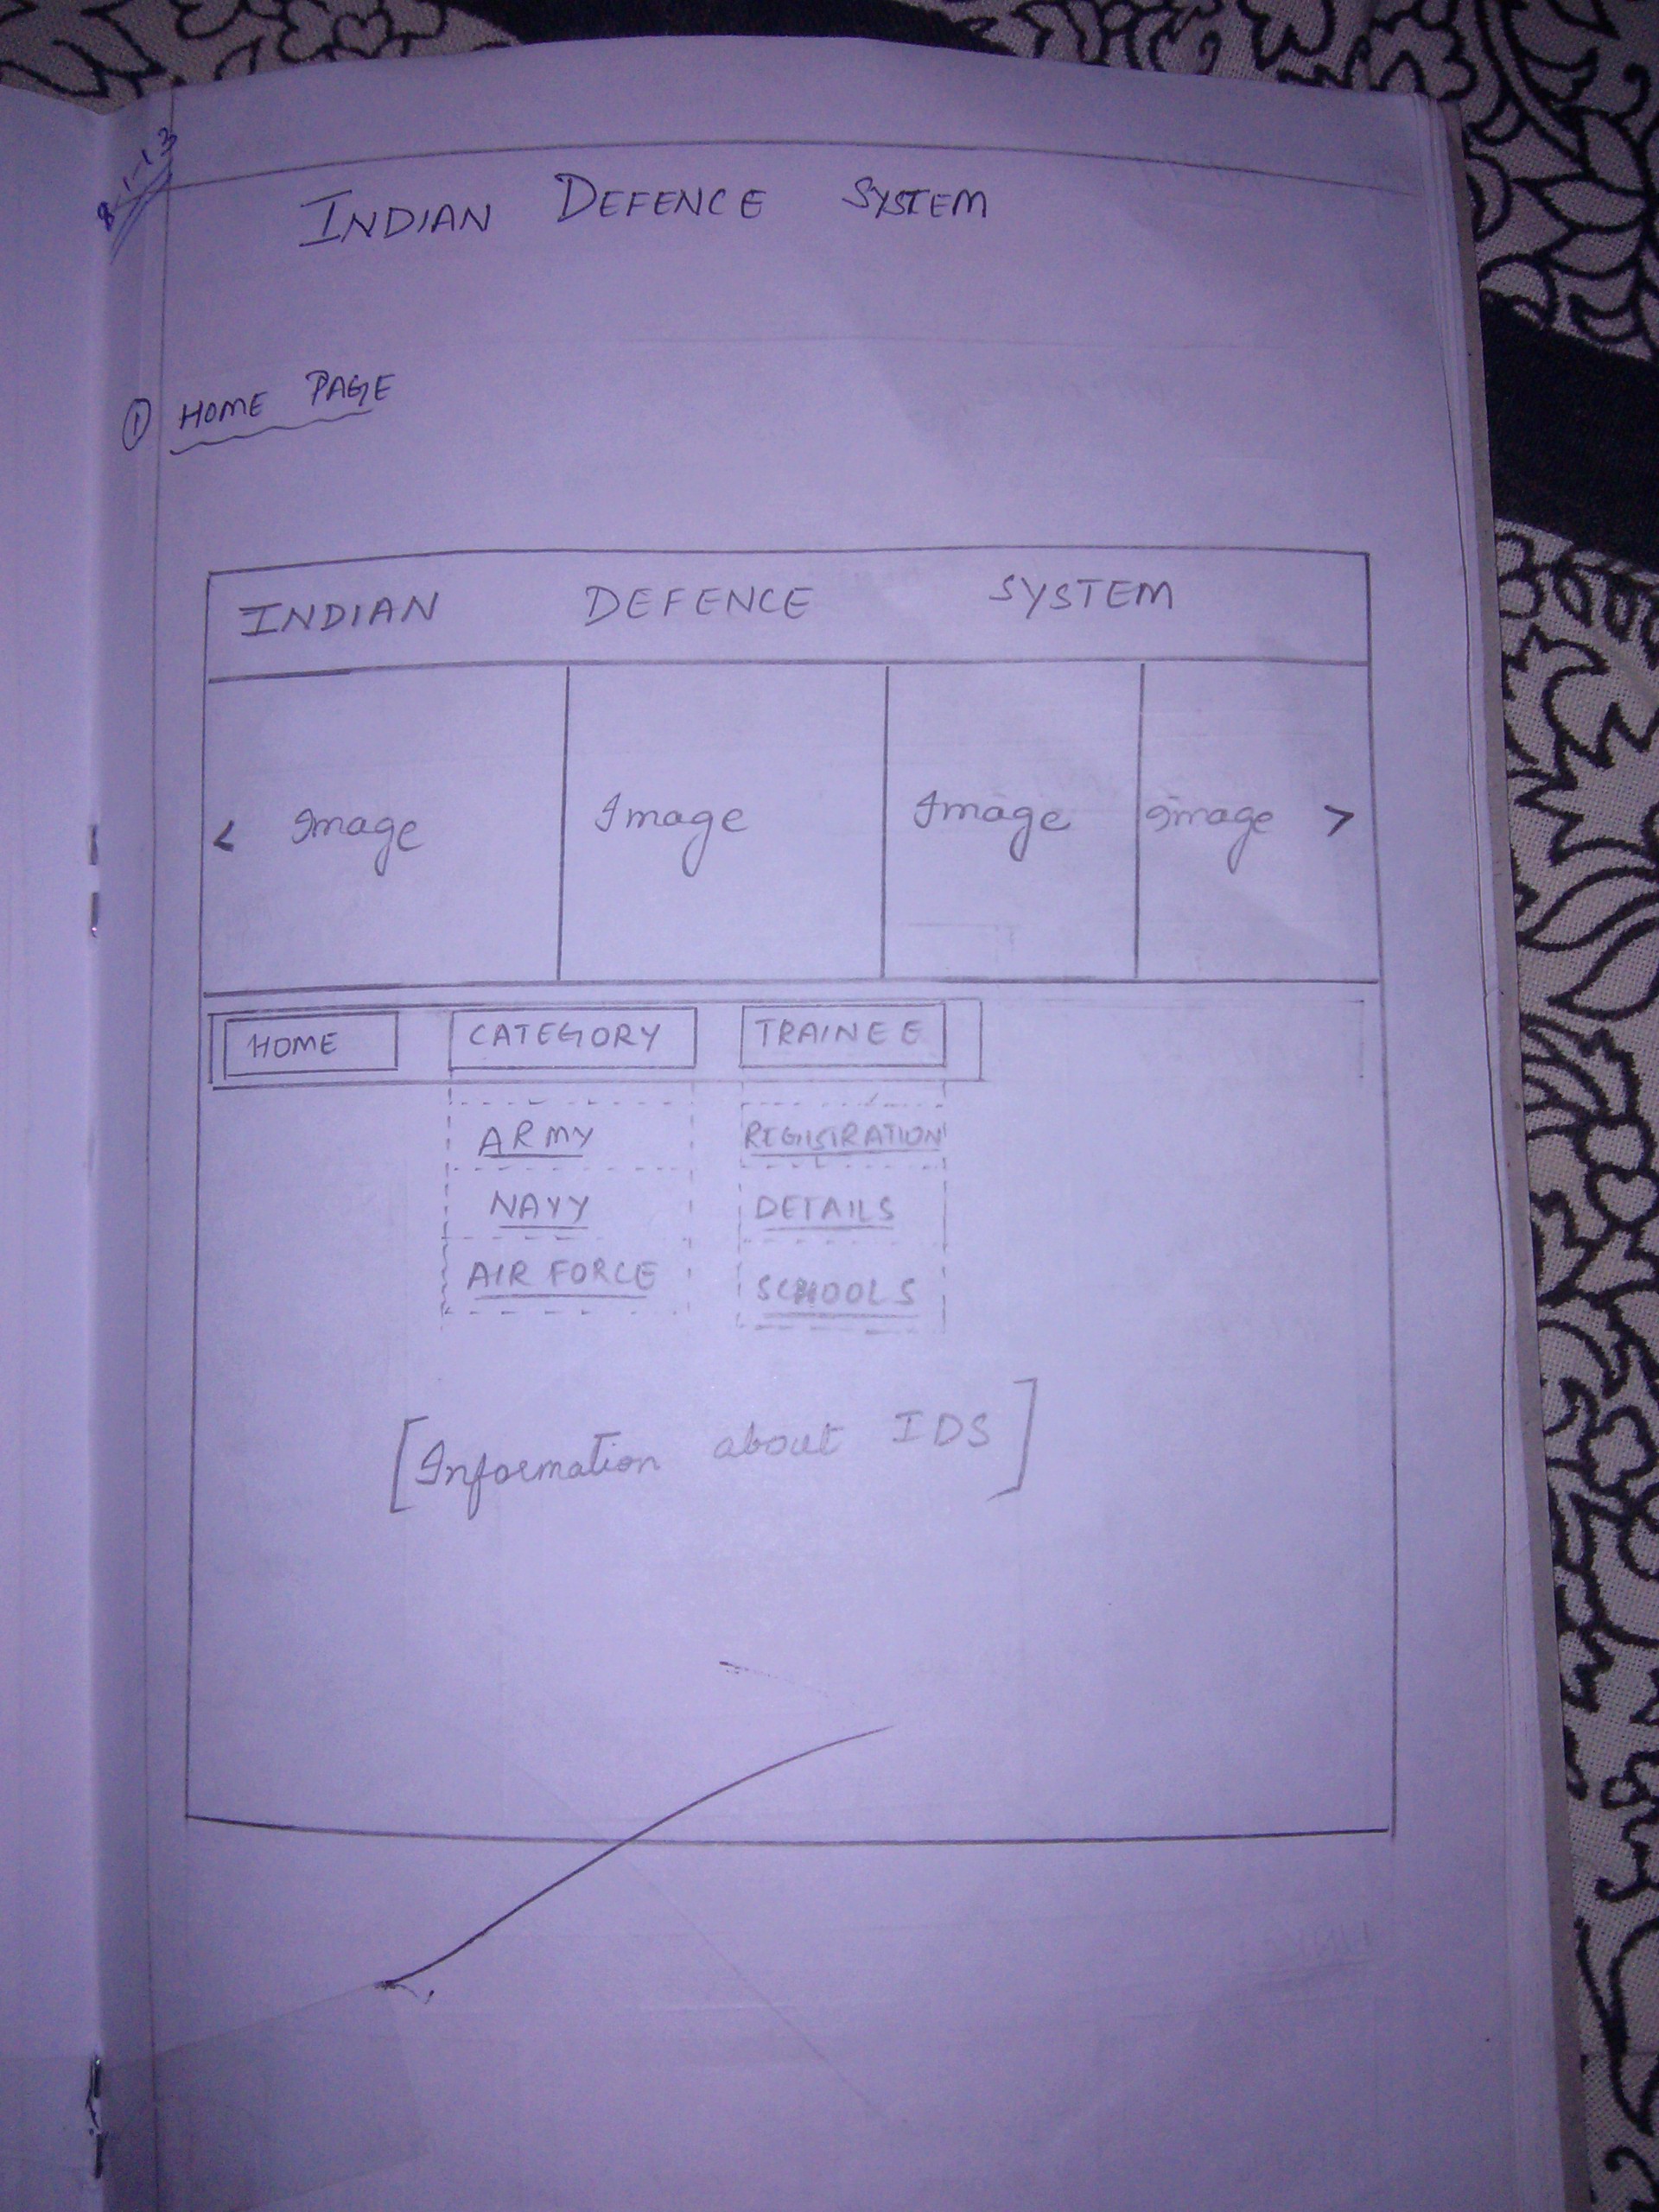 8-1-13
INDIAN DEFENCE SYSTEM
① HOME PAGE
INDIAN DEFENCE SYSTEM
< Image Image Image Image >
HOME CATEGORY TRAINEE
ARMY REGISTRATION
NAVY DETAILS
AIR FORCE SCHOOLS
[Information about IDS]